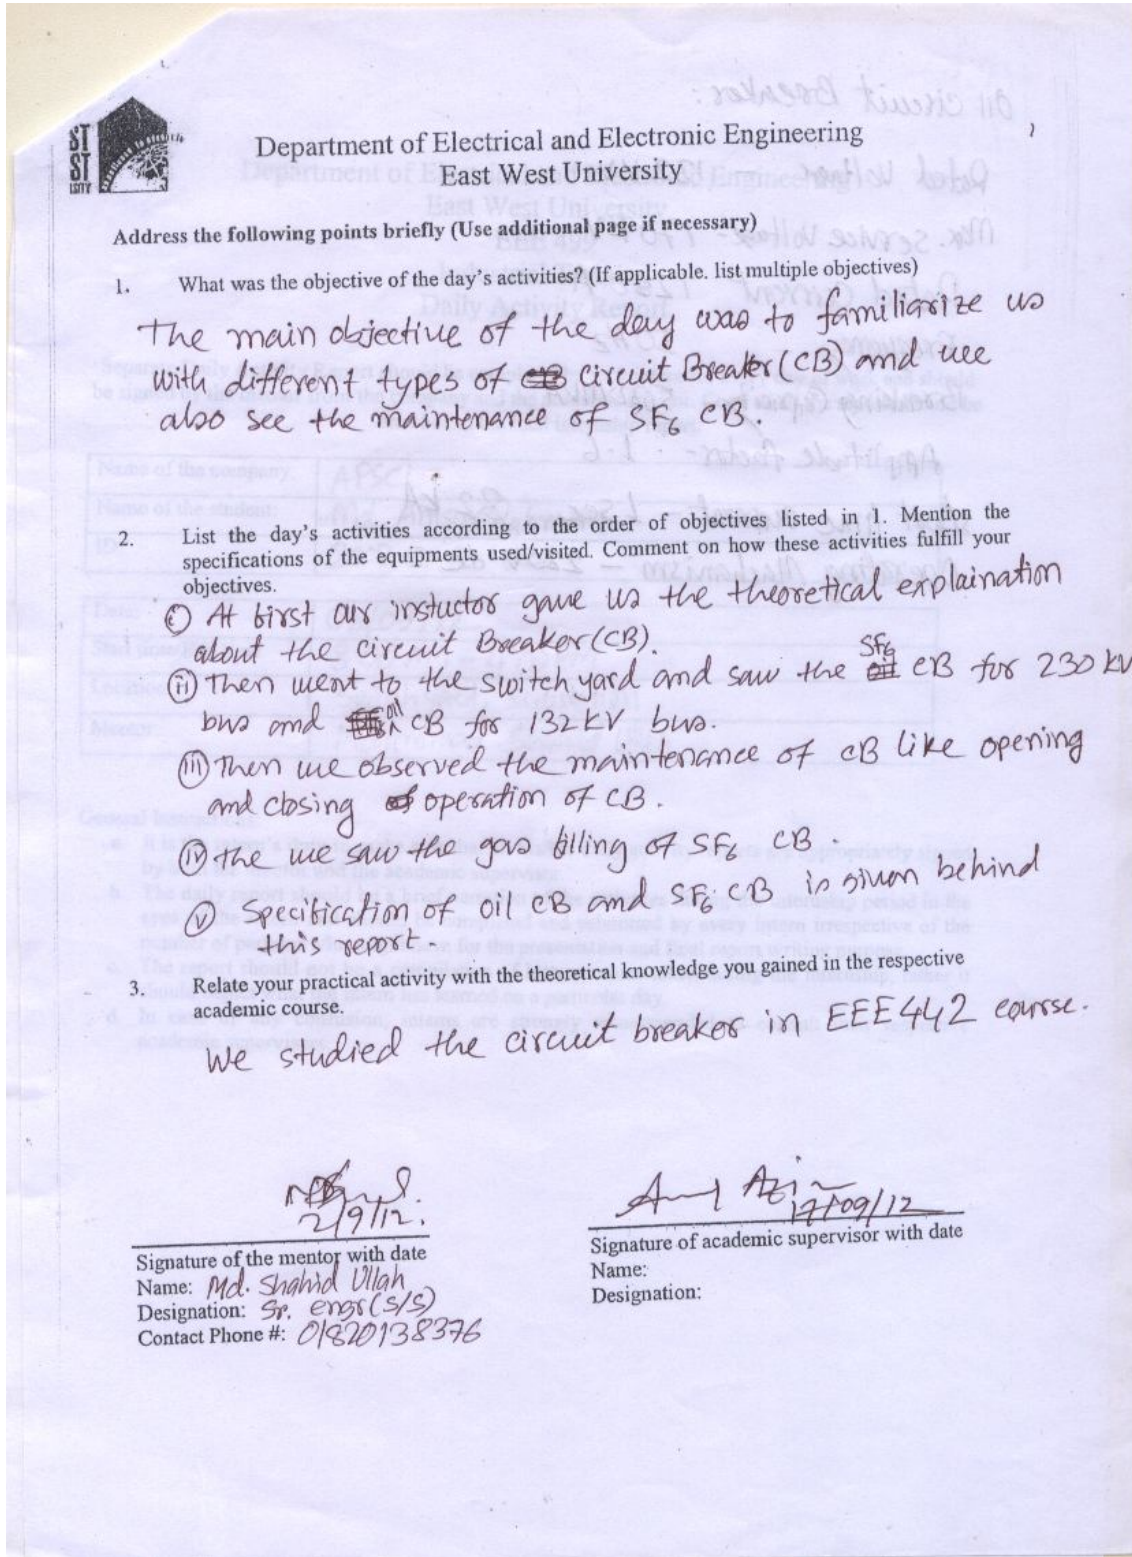 ST
ST
Department of Electrical and Electronic Engineering
East West University
Address the following points briefly (Use additional page if necessary)
1. What was the objective of the day's activities? (If applicable. list multiple objectives)
The main objective of the day was to familiarize us
with different types of circuit Breaker (CB) and we
also see the maintenance of SF6 CB.
2. List the day's activities according to the order of objectives listed in 1. Mention the
specifications of the equipments used/visited. Comment on how these activities fulfill your
objectives.
(i) At first our instuctor gave us the theoretical explaination
about the circuit Breaker (CB).
(ii) Then went to the switch yard and saw the SF6 CB for 230 kV
bus and oil CB for 132 kV bus.
(iii) Then we observed the maintenance of CB like opening
and closing operation of CB.
(iv) the we saw the gas filling of SF6 CB.
(v) Specification of oil CB and SF6 CB is given behind
this report.
3. Relate your practical activity with the theoretical knowledge you gained in the respective
academic course.
We studied the circuit breaker in EEE 442 course.
2/9/12.
17/09/12
Signature of the mentor with date
Name: Md. Shahid Ullah
Designation: Sr. engr (S/S)
Contact Phone #: 01820138376
Signature of academic supervisor with date
Name:
Designation: